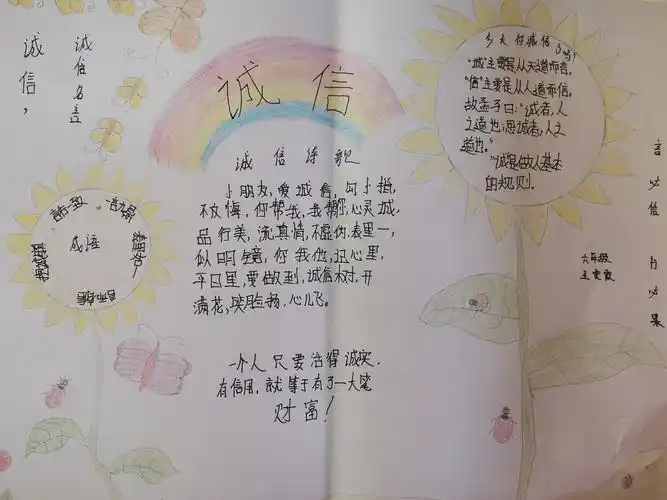 诚信,
诚信名言
诚信
成语
表里如一
诚信诗歌
小朋友,爱诚信,勾小指,
不反悔,你帮我,我帮你,心灵诚,
品行美,流真情,不虚伪,表里一,
似明镜,你我他,
平日里,要做到,诚信树,开
满花,笑脸扬,心儿飞。
一个人只要活得诚实,
有信用,就等于有了一大笔
财富!
今天你诚信了吗!
"诚"主要是从天道而言,
"信"主要是从人道而信,
故孟子曰:"诚者,人
之道也;思诚者,人之
道也。"
"诚是做人基本
的规则.
言必信 行必果
六年级